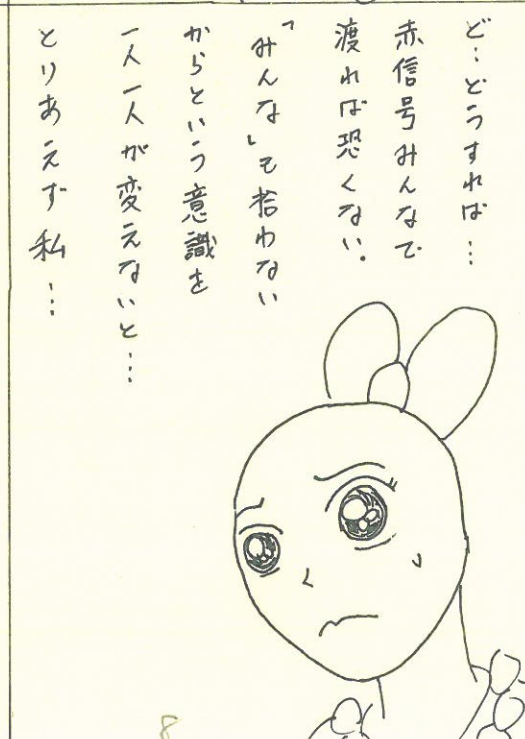 ど…どうすれば…
赤信号みんなで
渡れば恐くない。
「みんな」も拾わない
からという意識を
一人一人が変えないと…
とりあえず私…
8